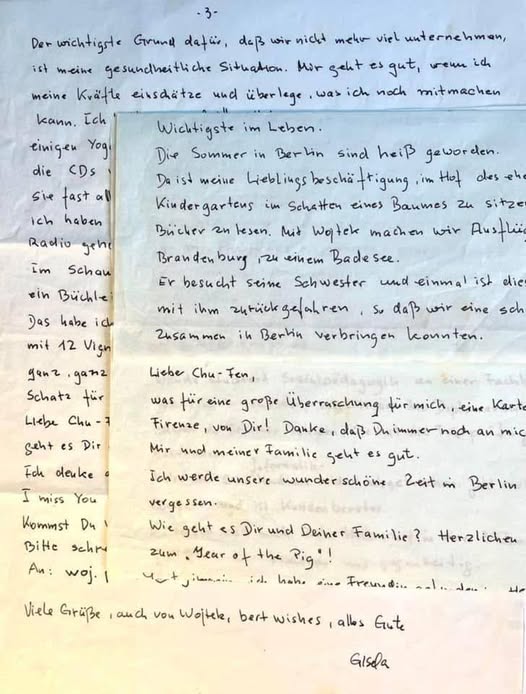 -3-
Der wichtigste Grund dafür, daß wir nicht mehr viel unternehmen,
ist meine gesundheitliche Situation. Mir geht es gut, wenn ich
meine Kräfte einschätze und überlege, was ich noch mitmachen
kann. Ich
einigen Yog
die CDs
sie fast al
ich haben
Radio geh
Im Schau
ein Büchle
Das habe ich
mit 12 Vign
ganz, ganz
Schatz für
Liebe Chu-F
geht es Dir
Ich denke
I miss You
Kommst Du
Bitte schr
An: woj.
Wichtigste im Leben.
Die Sommer in Berlin sind heiß geworden.
Da ist meine Lieblingsbeschäftigung, im Hof des ehe
Kindergartens im Schatten eines Baumes zu sitze
Bücher zu lesen. Mit Wojtek machen wir Ausflü
Brandenburg zu einem Badesee.
Er besucht seine Schwester und einmal ist die
mit ihm zurückgefahren, so daß wir eine sch
Zusammen in Berlin verbringen konnten.
Liebe Chu-Fen,
was für eine große Überraschung für mich, eine Karte
Firenze, von Dir! Danke, daß Du immer noch an mic
Mir und meiner Familie geht es gut.
Ich werde unsere wunderschöne Zeit in Berlin
vergessen.
Wie geht es Dir und Deiner Familie? Herzlichen
zum „Year of the Pig"!
ich habe eine Freundin
Viele Grüße, auch von Wojtek, best wishes, alles Gute
Gisela